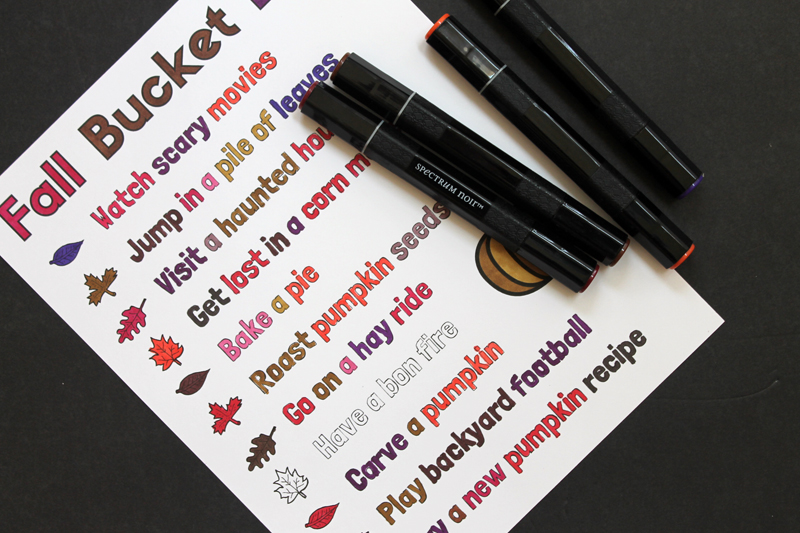 Fall Bucket
Watch scary movies
Jump in a pile of leaves
Visit a haunted
Get lost in a corn
Bake a pie
Roast pumpkin seeds
Go on a hay ride
Have a bon fire
Carve a pumpkin
Play backyard football
a new pumpkin recipe
SPECTRUM NOIR™